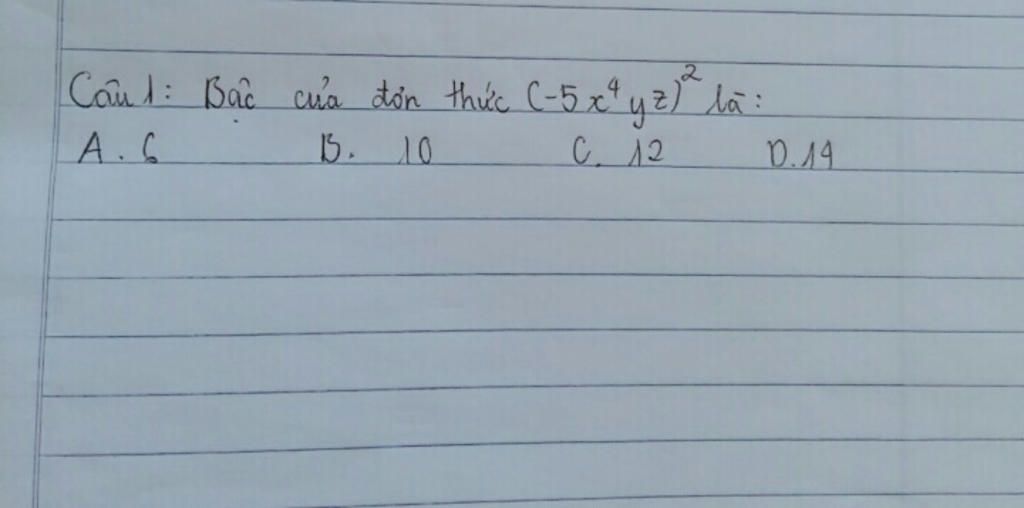 Câu 1: Bậc của đơn thức (-5x⁴yz)² là:
A. 6 B. 10 C. 12 D. 14